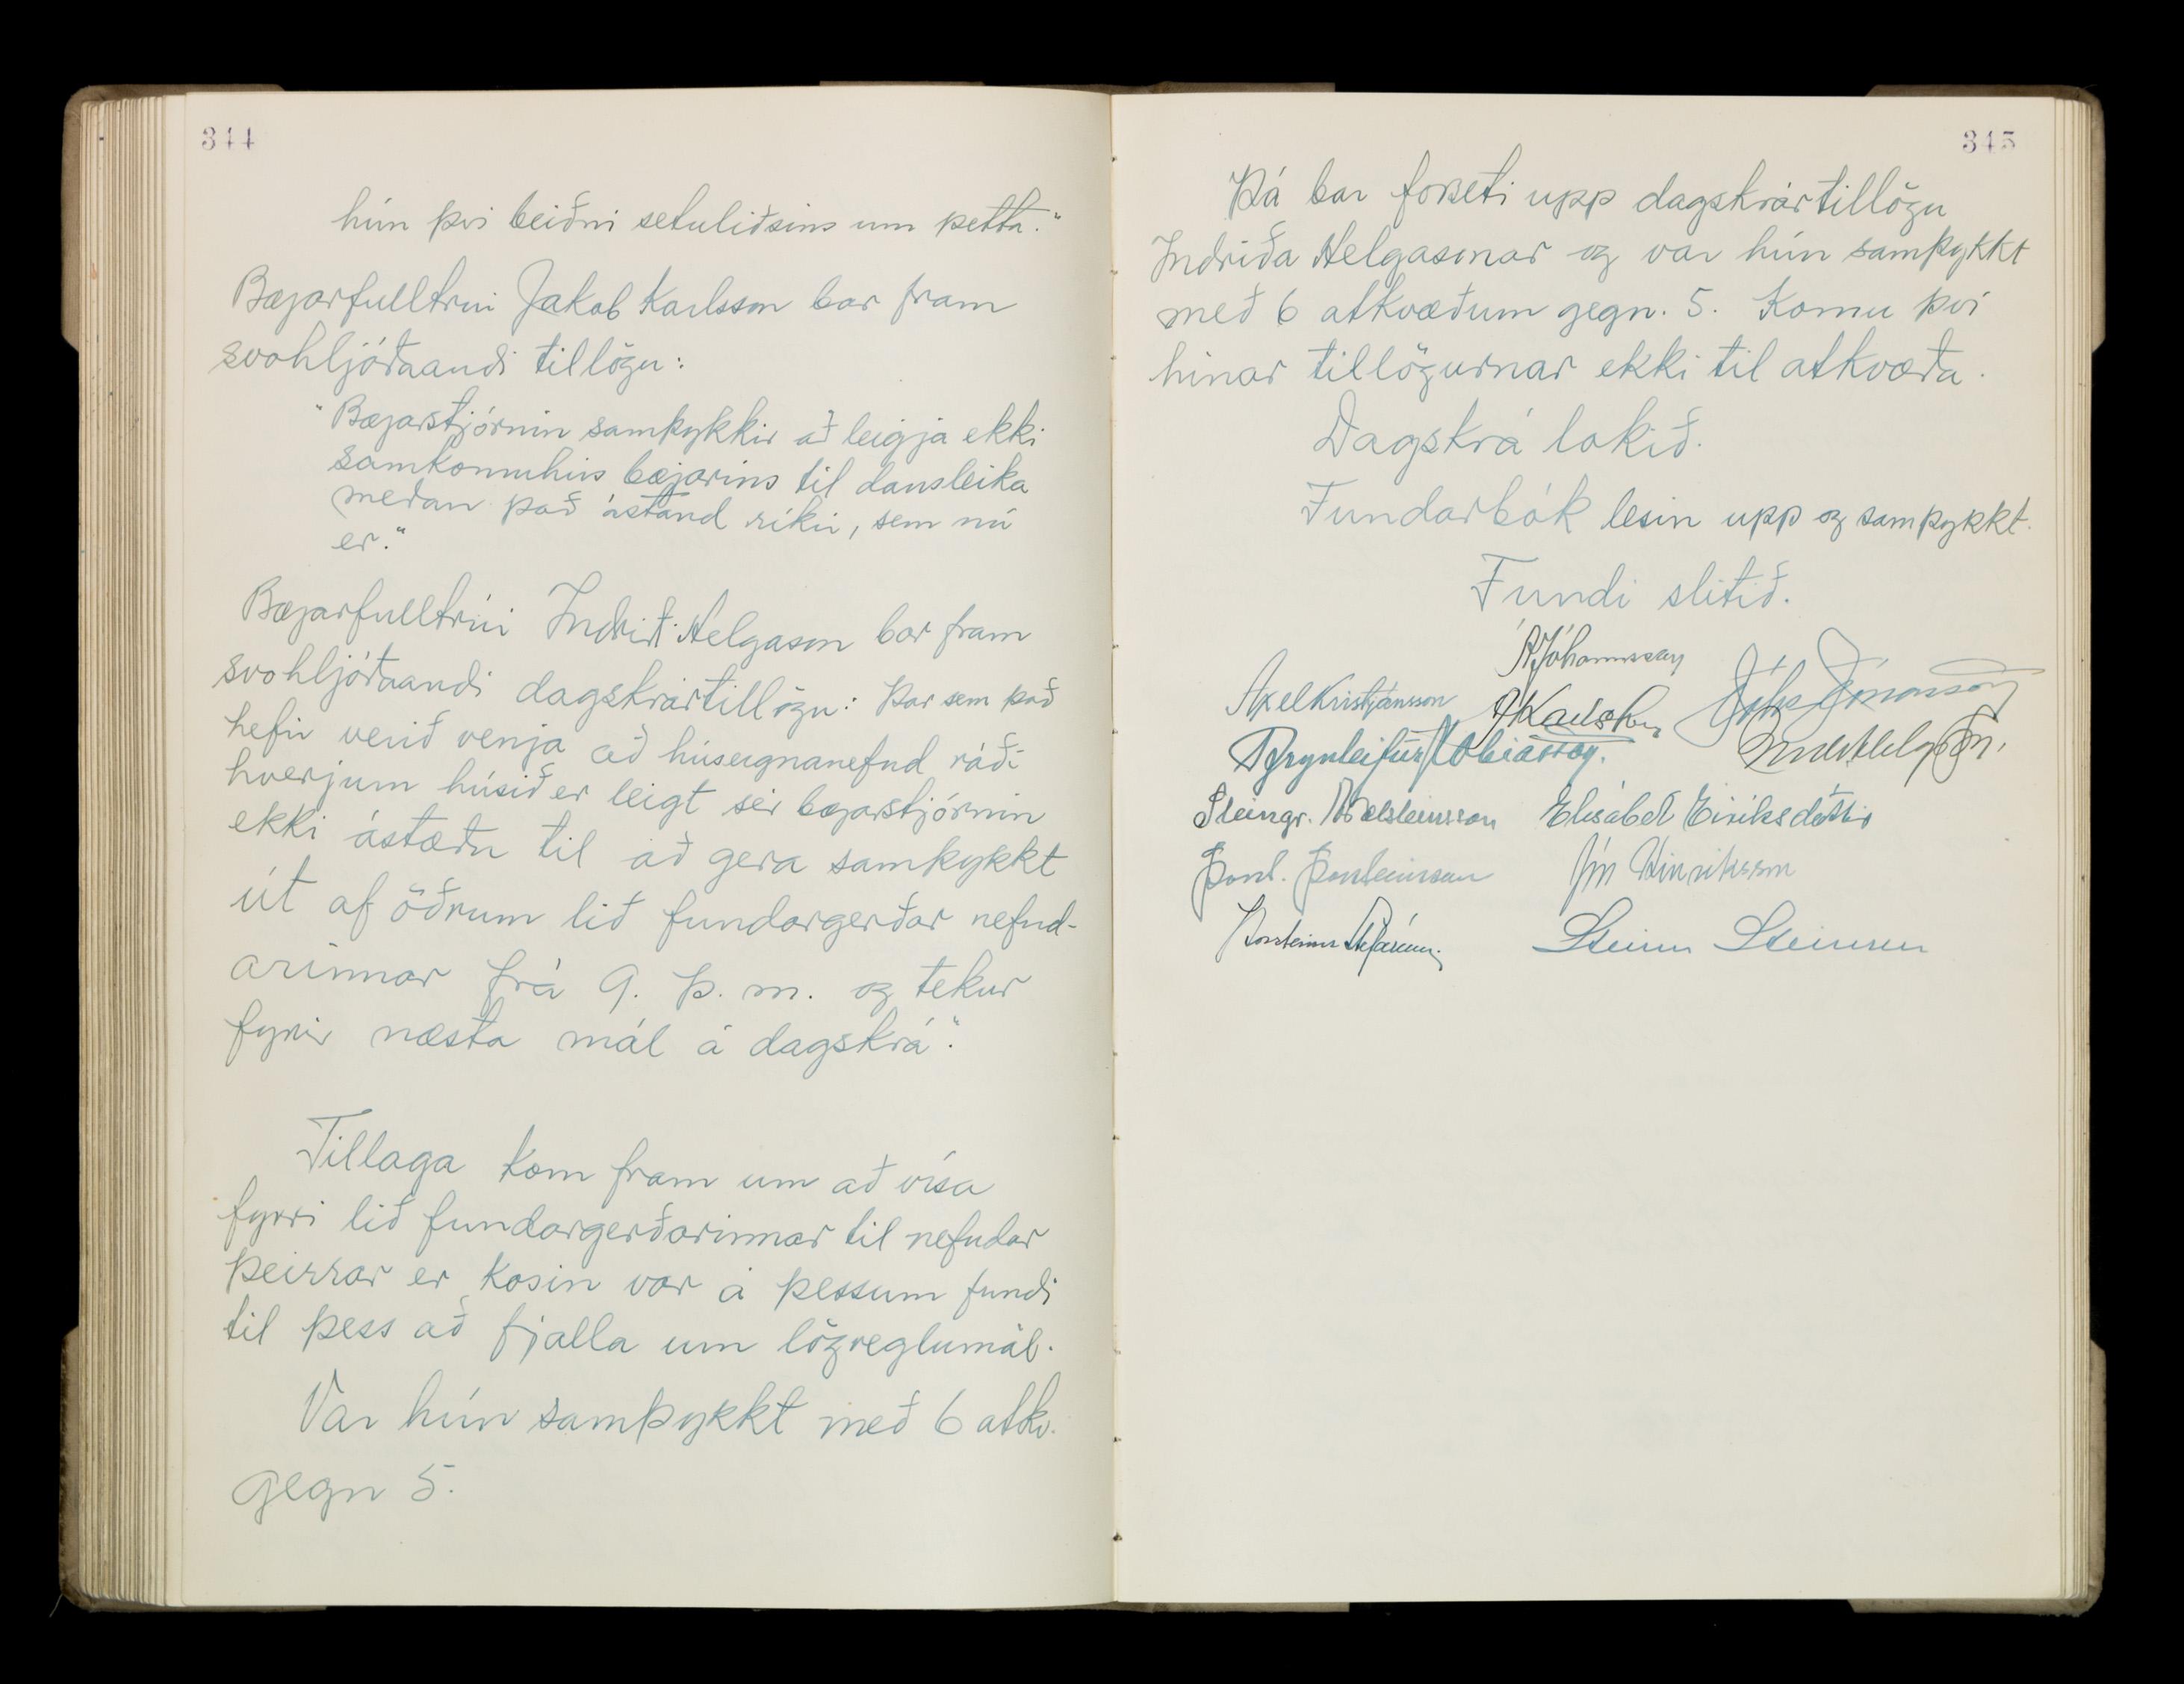 344
hún því beiðni setuliðsins um þetta."
Bæjarfulltrúi Jakob Karlsson bar fram
svohljóðaandi tillögu:
"Bæjarstjórnin samþykkir að leigja ekki
samkomuhús bæjarins til dansleika
meðan það ástand ríkir, sem nú
er."
Bæjarfulltrúi Indriði Helgason bar fram
svohljóðaandi dagskrártillögu: Þar sem það
hefir verið venja að húseignanefnd ráði
hverjum húsið er leigt sér bæjarstjórnin
ekki ástæðu til að gera samþykkt
út af öðrum lið fundargerðar nefnd-
arinnar frá 9. þ. m. og tekur
fyrir næsta mál á dagskrá".
Tillaga kom fram um að vísa
fyrri lið fundargerðarinnar til nefndar
þeirrar er kosin var á þessum fundi
til þess að fjalla um lögreglumál.
Var hún samþykkt með 6 atkv.
gegn 5.
345
Þá bar forseti upp dagskrártillögu
Indriða Helgasonar og var hún samþykkt
með 6 atkvæðum gegn. 5. Komu því
hinar tillögurnar ekki til atkvæða.
Dagskrá lokið.
Fundarbók lesin upp og samþykkt.
Fundi slitið.
Jóhannsson
Axel Kristjánsson J Karlsson Jóhs Jónasson
Brynleifur Tobiasson. Indr Helgason.
Steingr. Aðalsteinsson Elísabet Eiríksdóttir
Þorst. Þorsteinsson Jón Hinriksson
Þorsteinn Stefánsson. Steinn Steinsen